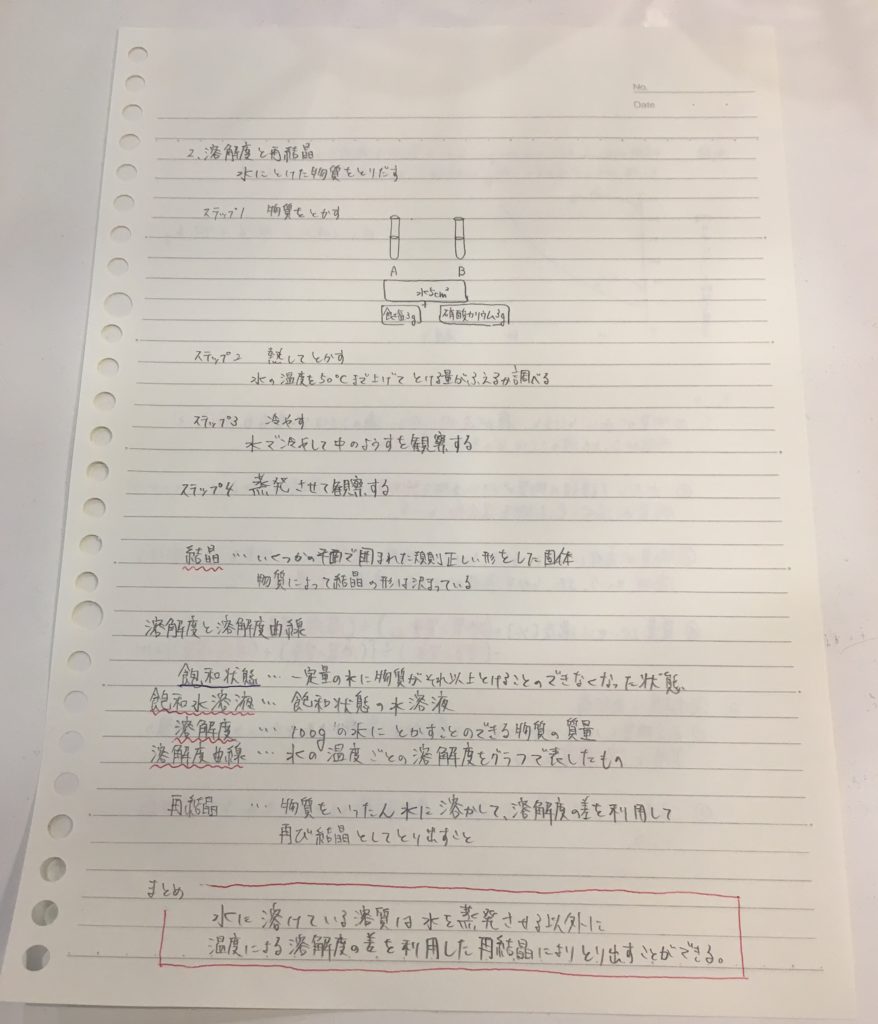 No.
Date
2、溶解度と再結晶
水にとけた物質をとりだす
ステップ1 物質をとかす
A B
水5cm³
+
食塩3g 硝酸カリウム3g
ステップ2 熱してとかす
水の温度を50℃まで上げてとける量がふえるか調べる
ステップ3 冷やす
水で冷やして中のようすを観察する
ステップ4 蒸発させて観察する
結晶 … いくつかの平面で囲まれた規則正しい形をした固体
物質によって結晶の形は決まっている
溶解度と溶解度曲線
飽和状態 … 一定量の水に物質がそれ以上とけることのできなくなった状態
飽和水溶液 … 飽和状態の水溶液
溶解度 … 100gの水にとかすことのできる物質の質量
溶解度曲線 … 水の温度ごとの溶解度をグラフで表したもの
再結晶 … 物質をいったん水に溶かして、溶解度の差を利用して
再び結晶としてとり出すこと
まとめ
水に溶けている溶質は水を蒸発させる以外に
温度による溶解度の差を利用した再結晶によりとり出すことができる。